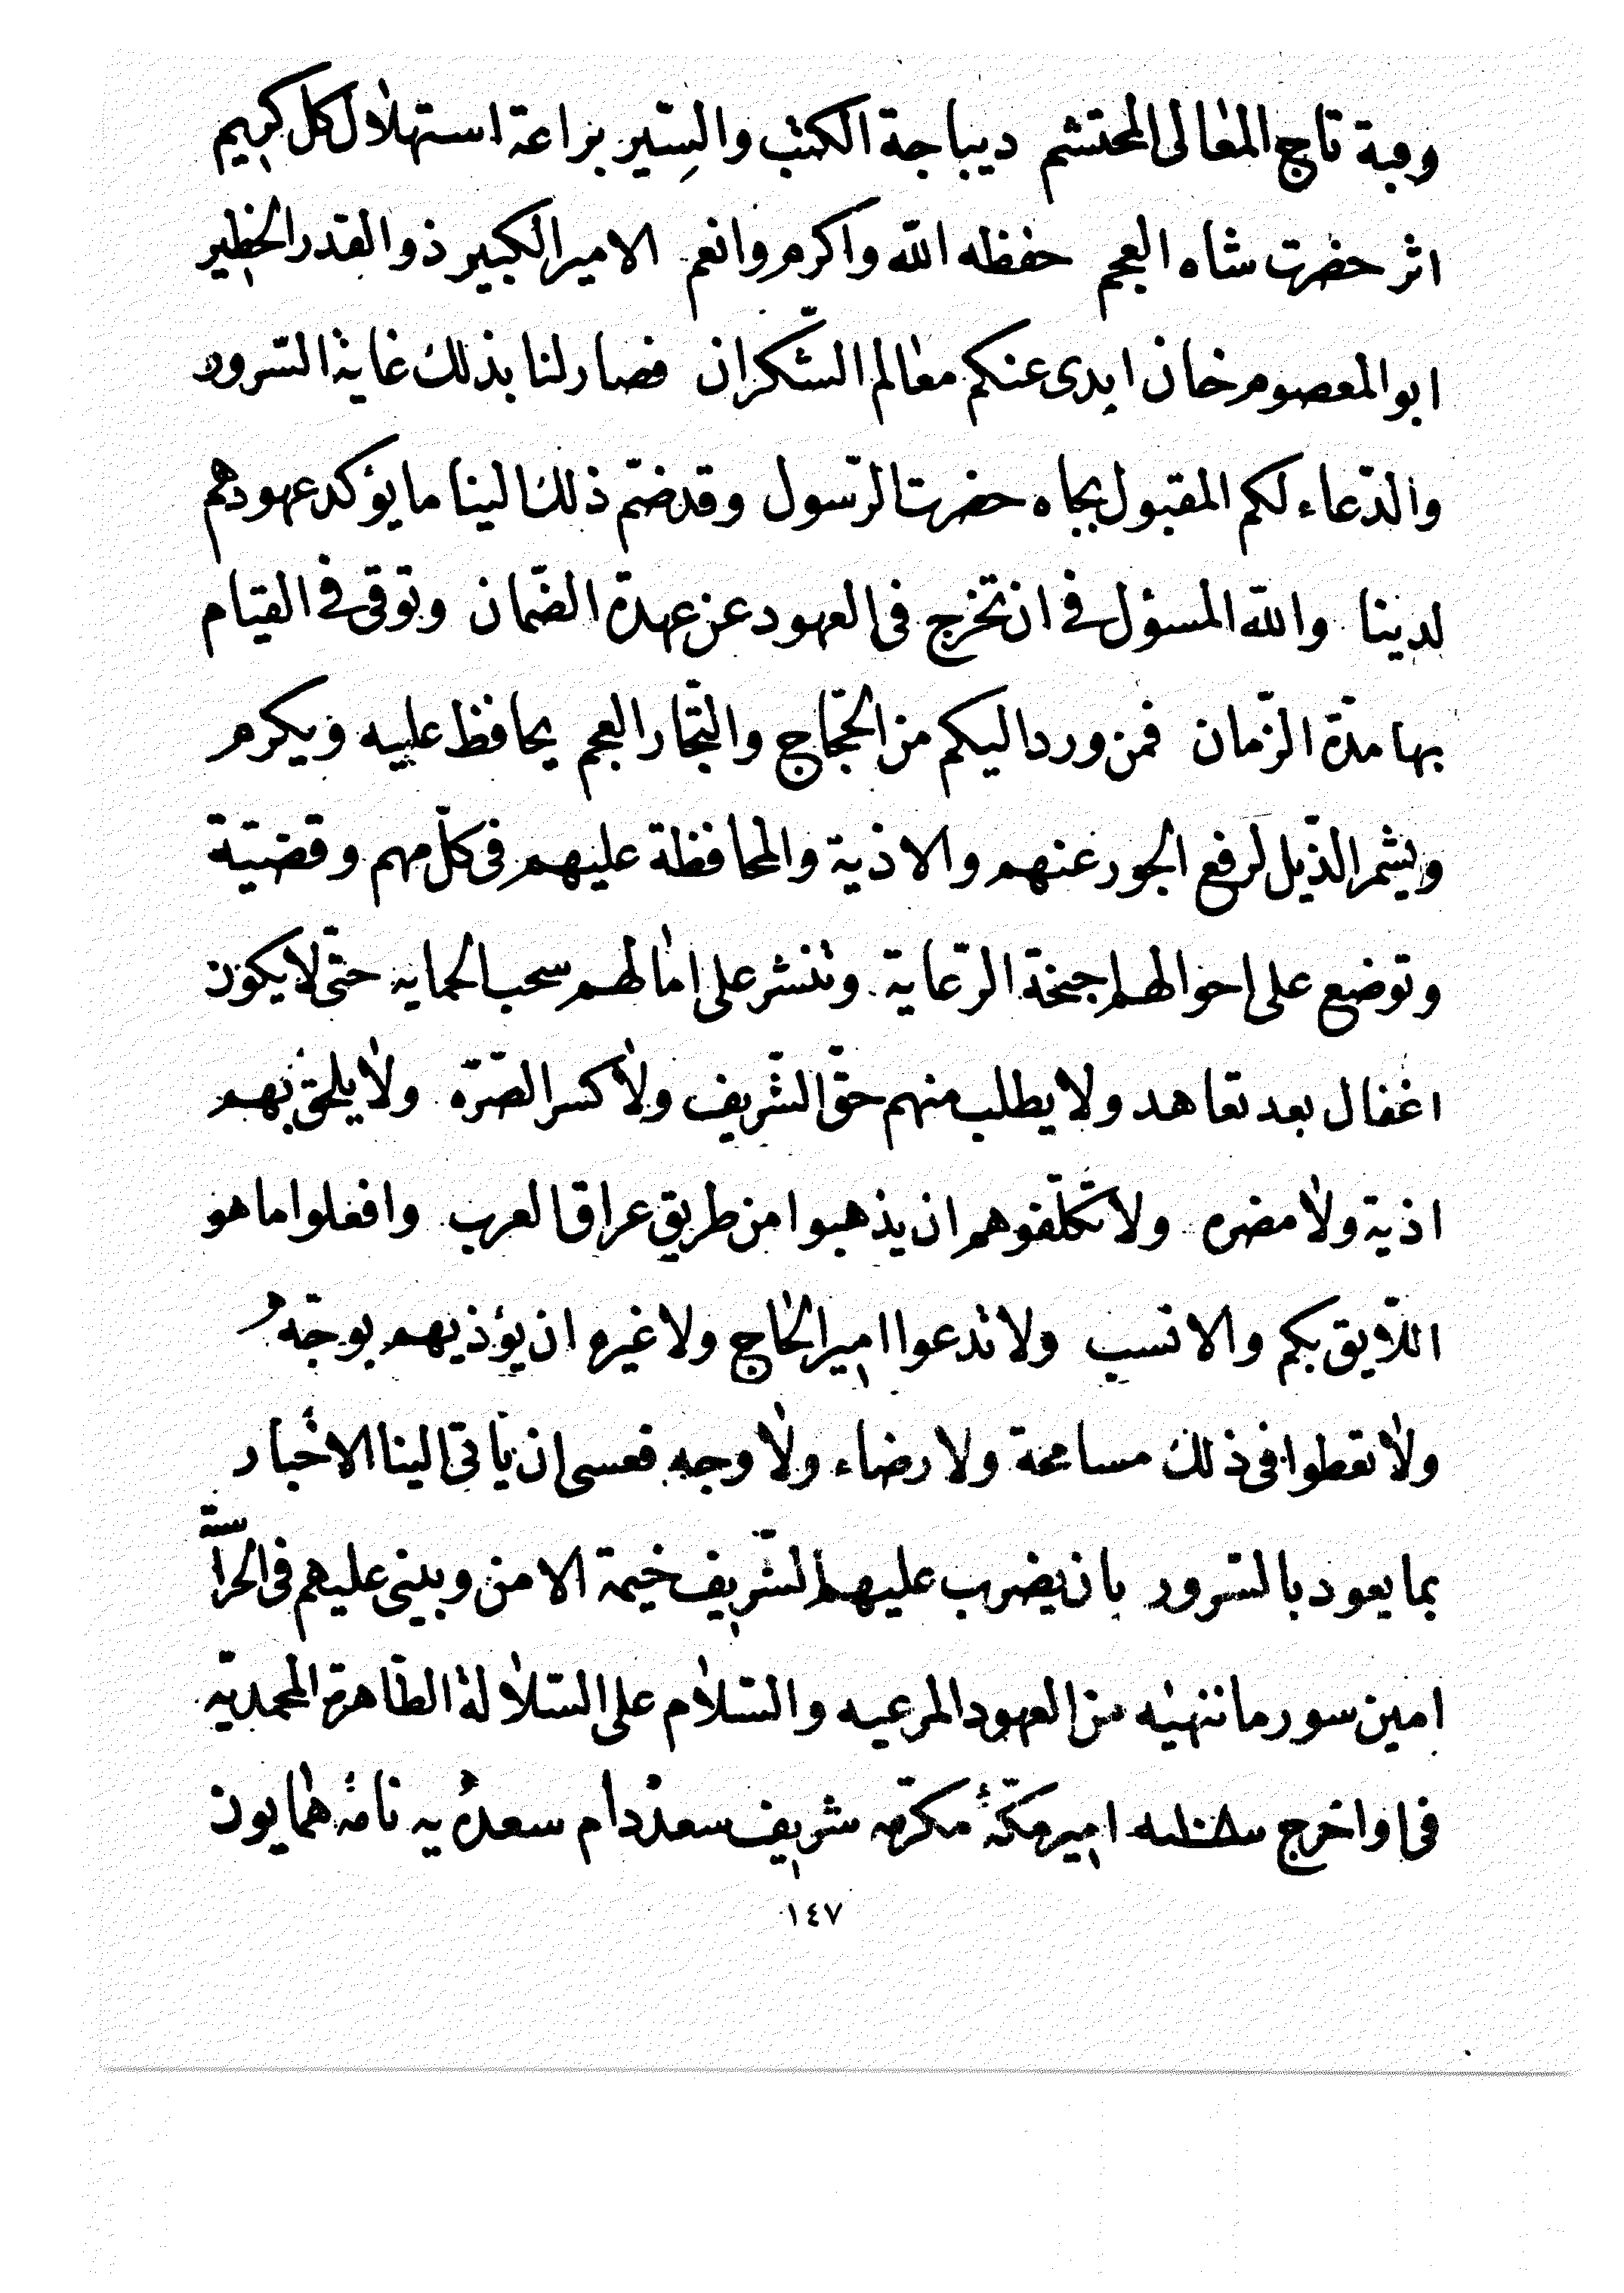 وقبة تاج المعالى المحتشم ديباجة الكتب والسير براعة استهلال كل كريم
اثر حضرت شاه العجم حفظه الله واكرم وانعم الامير الكبير ذو القدر الخطير
ابو المعصوم خان ابدى عنكم معالم الشكران فصار لنا بذلك غاية السرور
والدّعاء لكم المقبول بجاه حضرت الرّسول وقد ضمّ ذلك الينا ما يؤكد عهودهم
لدينا والله المسؤل فى ان تخرج فى العهود عن عهدة الضّمان وتوقى فى القيام
بها مدّة الزّمان فمن ورد اليكم من الحجّاج والتجّار العجم يحافظ عليه ويكرم
ويشمر الذّيل لرفع الجور عنهم والاذية والمحافظة عليهم فى كلّ مهم وقضيّة
وتوضع على احوالهم اجنحة الرّعاية وتنشر على امالهم سحب الحمايه حتّى لا يكون
اغفال بعد تعاهد ولا يطلب منهم حقّ الشّريف ولا كسر الصّرّه ولا يلحق بهم
اذية ولا مضره ولا تكلّفوهم ان يذهبوا من طريق عراق العرب وافعلوا ما هو
اللّايق بكم والانسب ولا تدعوا امير الحاج ولا غيره ان يؤذيهم بوجّه
ولا تعطوا فى ذلك مسامحة ولا رضاء ولا وجه فعسى ان ياتى الينا الاخبار
بما يعود بالسّرور بان يضرب عليهم الشّريف خيمة الامن ويبنى عليهم فى الحراسّة
امين سور ما ننهيه من العهود المرعيه والسّلام على السّلالة الطّاهرة المحمديّه
فى اواخر ج امير مكّهٔ مكرّمه شريف سعد دام سعده يه نامهٔ همايون
١٤٧